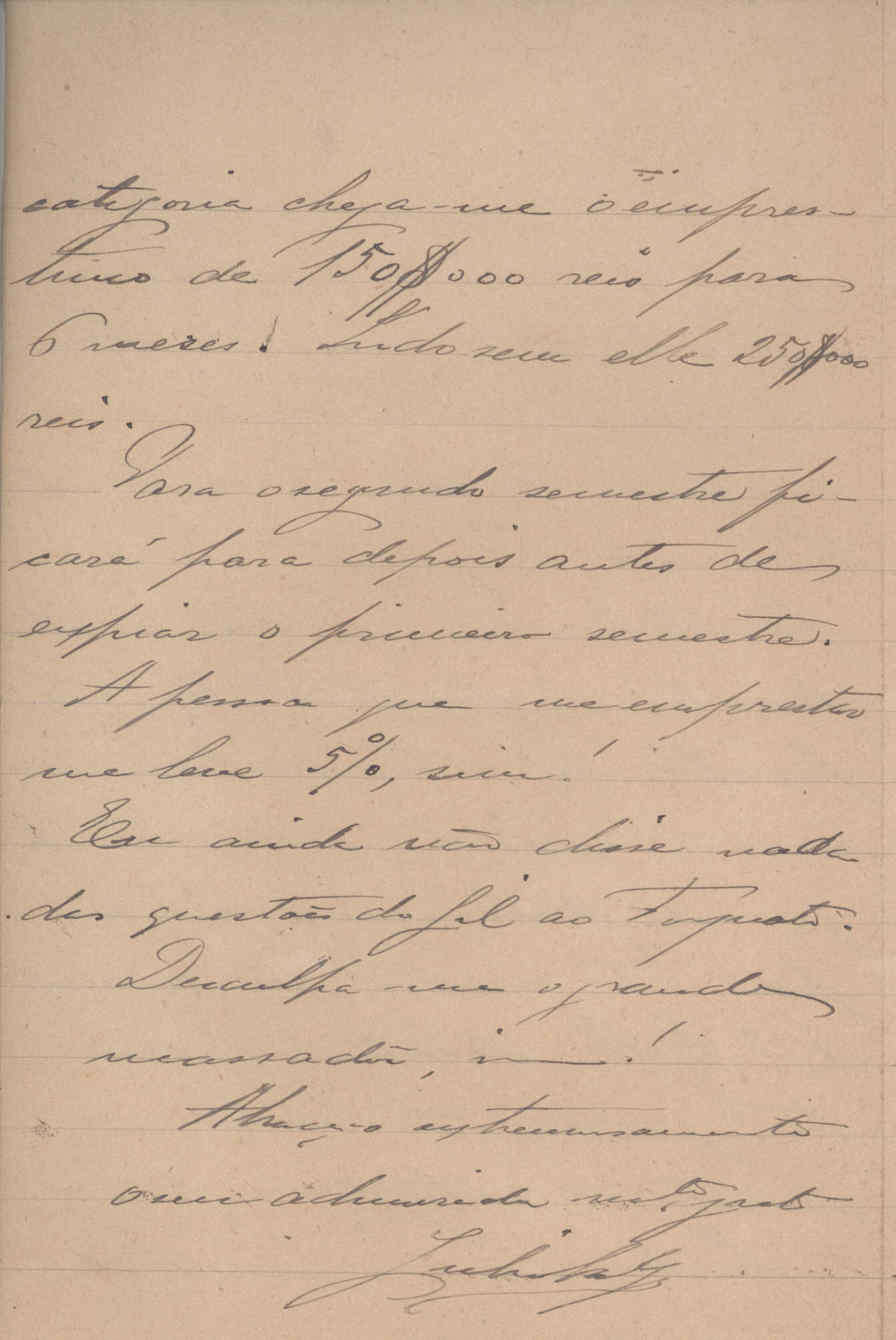 categoria chega-me o empres-
timo de 150$000 reis para
6 mezes! Tudo sem elle 250$000
reis.
Para o segundo semestre fi-
cará para depois antes de
expiar o primeiro semestre.
A pessoa que me emprestar
me leve 5%, sim!
Eu ainda não disse nada
das questões do Gil ao Torquato.
Desculpa-me o grande
massador, sim!
Abraça-o extremosamente
o seu admirador mto grato